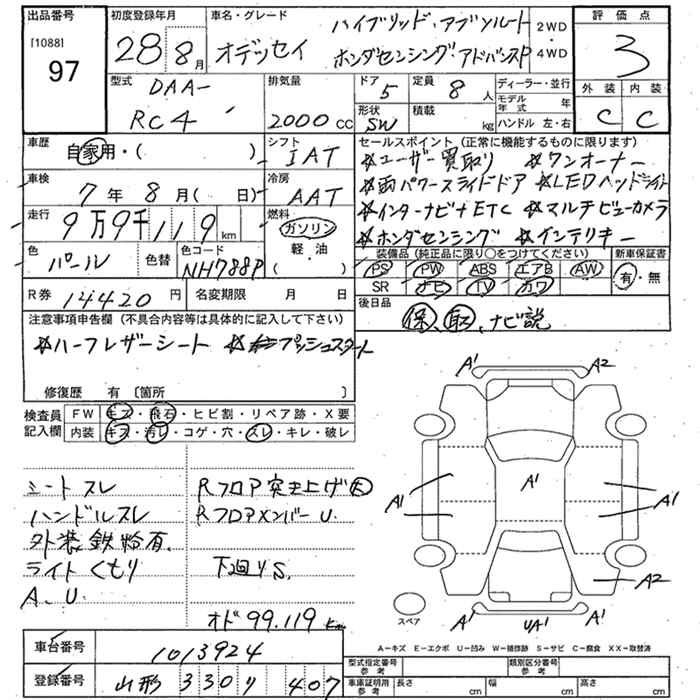 出品番号 初度登録年月 車名・グレード ハイブリッド・アブソルート 2WD 評価点
[1088] 97 28年8月 オデッセイ ホンダセンシング・アドバンスP ・4WD 3
型式 DAA- 排気量 ドア 5 定員 8人 ディーラー・並行 外装 内装
RC4 2000cc 形状 SW 積載 kg モデル年式 年 C C
ハンドル 左・右
車歴 自家用・( ) シフト IAT セールスポイント(正常に機能するものに限ります)
☆ユーザー買取り ☆ワンオーナー
車検 7年8月( 日) 冷房 AAT ☆両パワースライドドア ☆LEDヘッドライト
走行 9万9千119km 燃料 ガソリン ☆インターナビ+ETC ☆マルチビューカメラ
軽油 ( ) ☆ホンダセンシング ☆インテリキー
色 パール 色替 色コード NH788P 装備品(純正品に限り○をつけてください) 新車保証書
PS PW ABS エアB AW 有・無
SR ナビ TV カワ
R券 14420円 名変期限 月 日 後日品
保、取、ナビ説
注意事項申告欄(不具合内容等は具体的に記入して下さい)
☆ハーフレザーシート ☆プッシュスタート
修復歴 有〔箇所 〕
検査員記入欄 FW キズ・飛石・ヒビ割・リペア跡・X要
内装 キズ・汚レ・コゲ・穴・スレ・キレ・破レ
シートスレ Rフロア突き上げ大
ハンドルスレ RフロアメンバーU
外装鉄粉有
ライトくもり 下廻りS
A.U.
オド99.119km
A1 A2
A1 A1 A1
A2
A1 UA1 A1
スペア
A-キズ E-エクボ U-凹み W-補修跡 S-サビ C-腐食 XX-取替済
車台番号 1013924
登録番号 山形 330 り 407
型式指定番号 参考 類別区分番号 参考
車庫証明用 参考 長さ cm 幅 cm 高さ cm